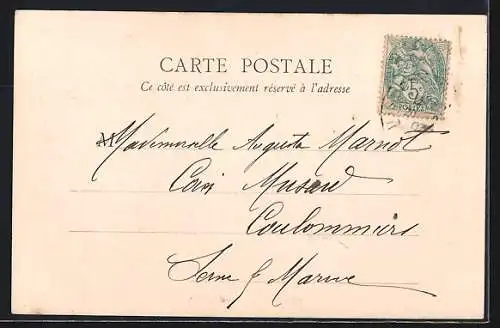 CARTE POSTALE
Ce côté est exclusivement réservé à l'adresse
Mademoiselle Augusta Marnot
Musard
Coulommiers
Seine & Marne